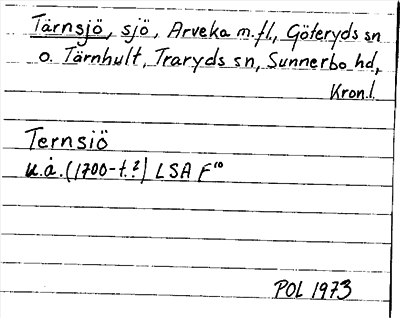 Tärnsjö, sjö, Arveka m.fl., Göteryds sn
o. Tärnhult, Traryds sn, Sunnerbo hd,
Kron.l.
Ternsiö
u.å. (1700-t.?) LSA F¹⁰
POL 1973